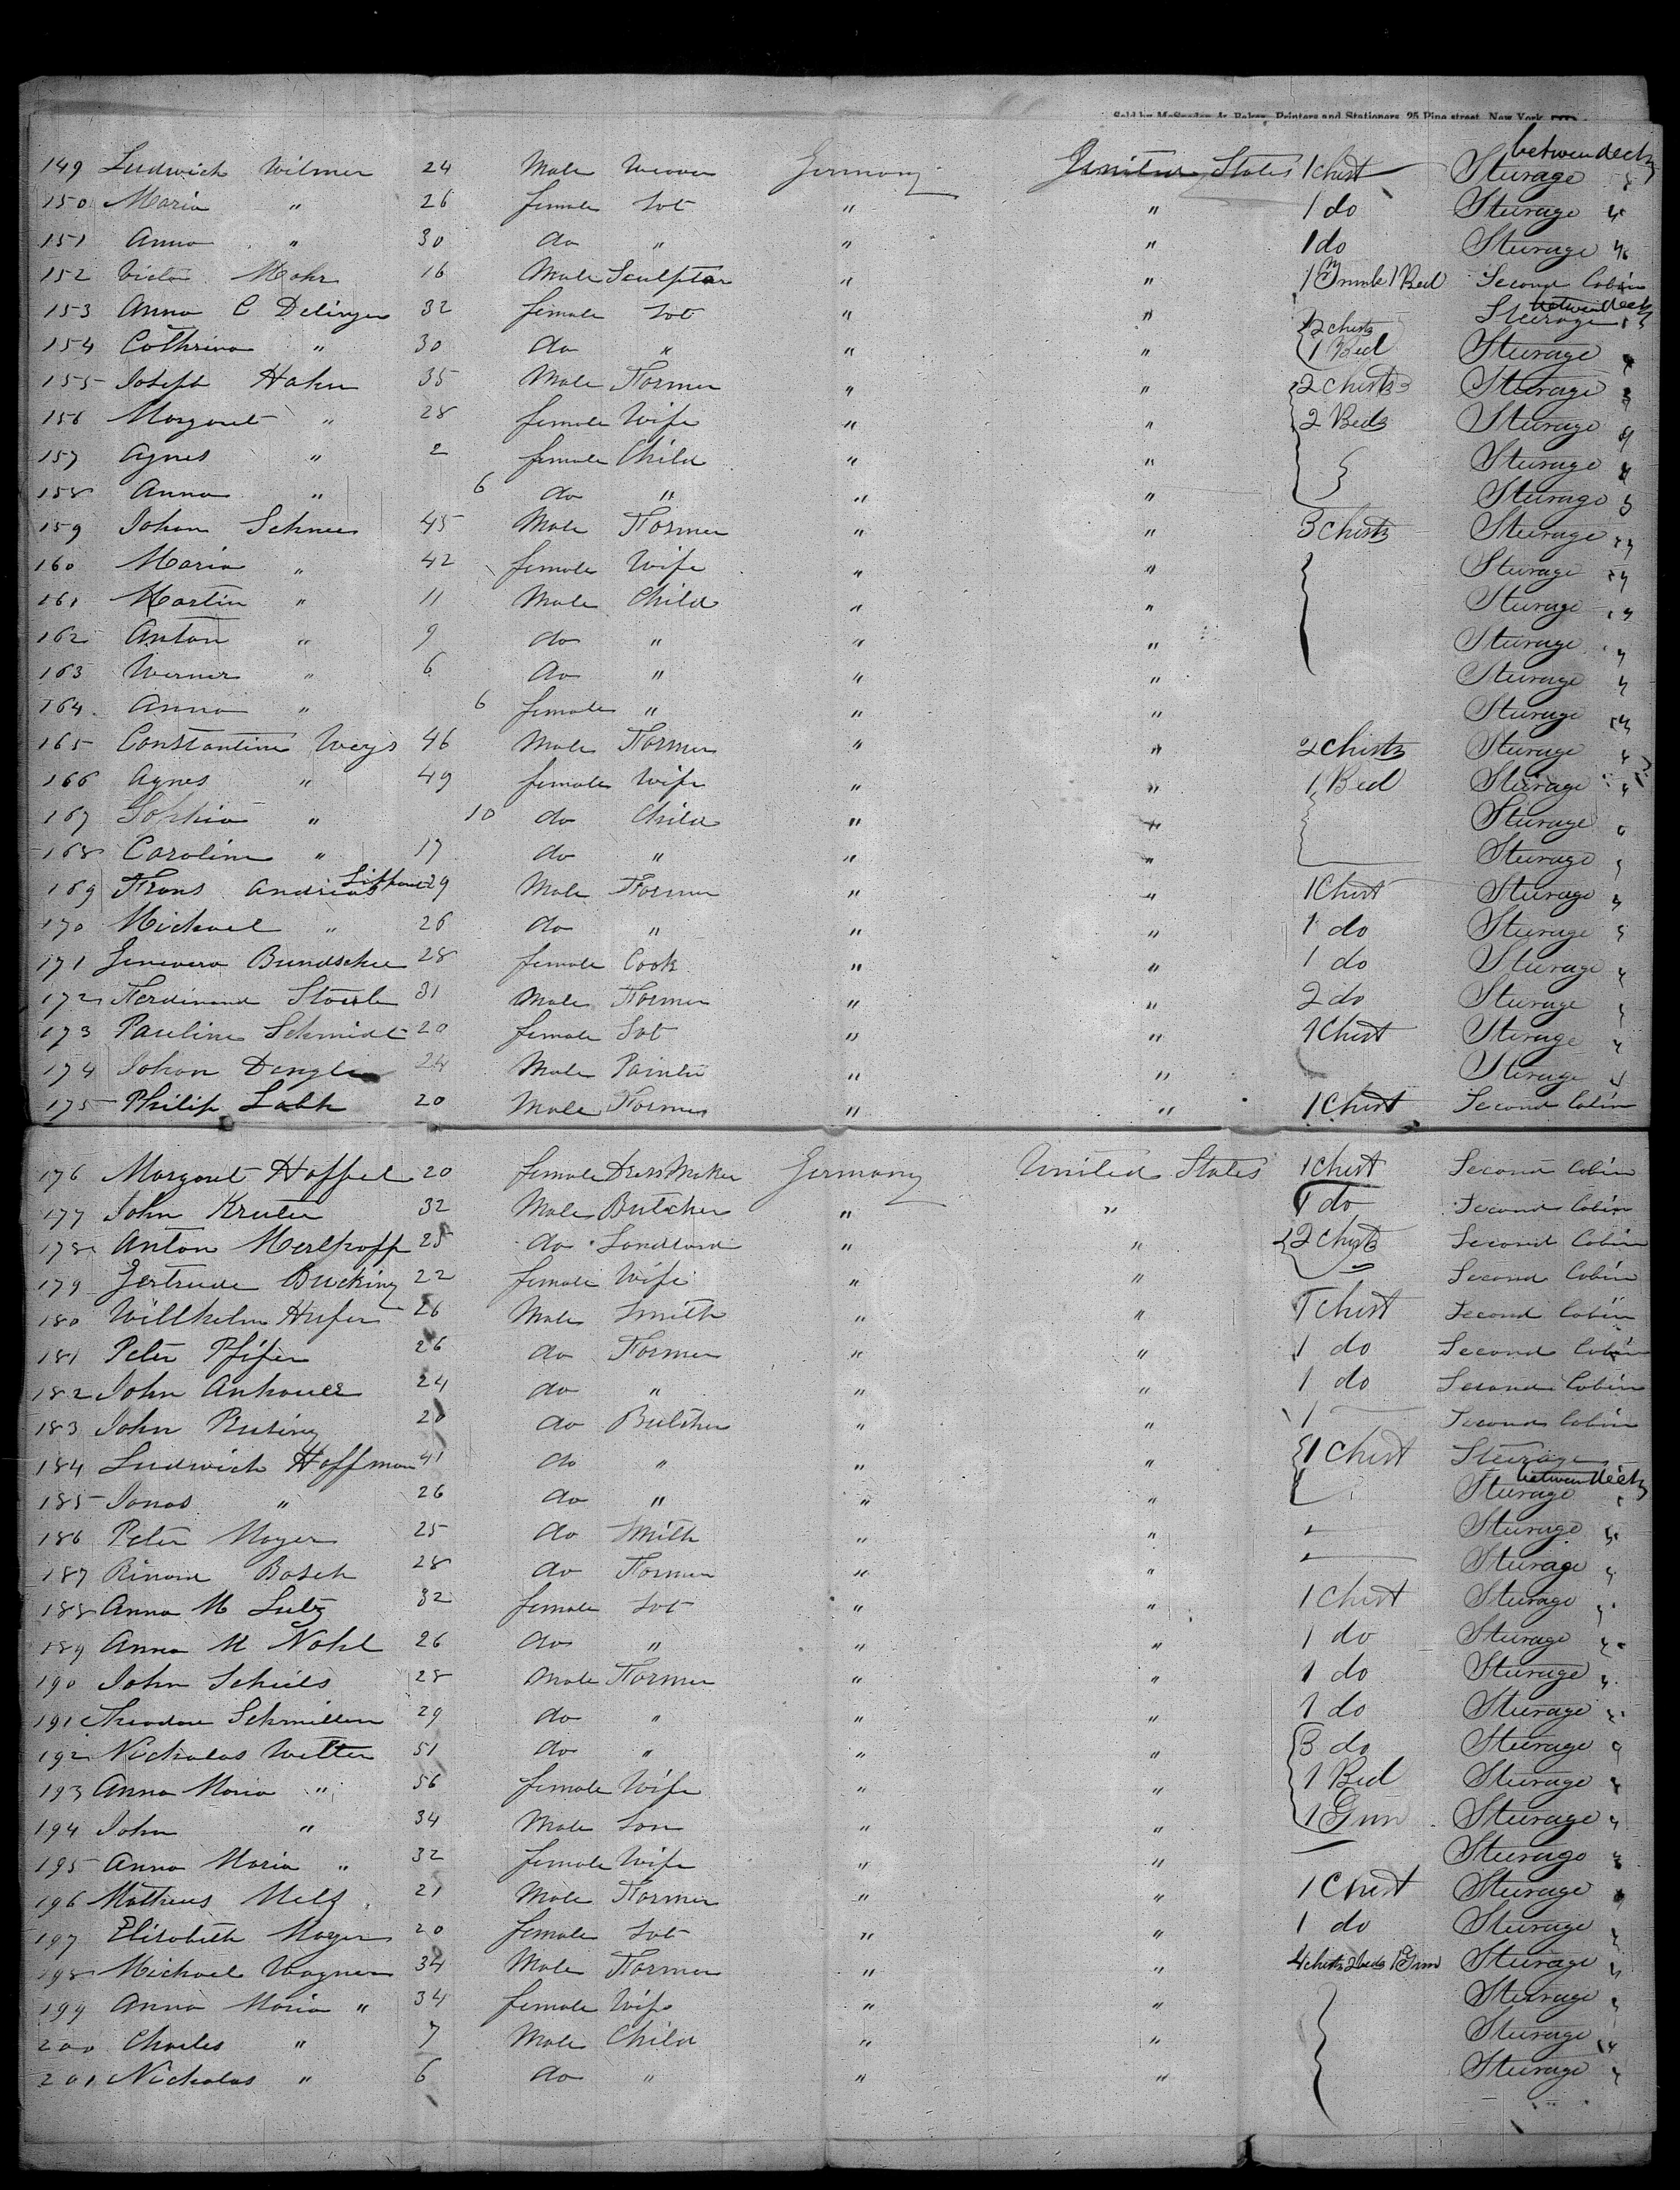 Sold by McSpedon & Baker, Printers and Stationers, 25 Pine street, New York
betwendeck
149 Ludwich Wilmer 24 Male Weaver Germany United States 1 chest Sturage "
150 Maria " 26 female Svt " " 1 do Sturage "
151 Anna " 30 do " " " 1 do Sturage "
152 Victor Mohr 16 Male Sculptor " " 1 Trunk 1 Bed Second Cabin
betwendeck
153 Anna C Delinger 32 female Svt " " 2 chists Sturage "
154 Cathrina " 30 do " " " 1 Bed Sturage "
155 Joseph Hahn 35 Male Farmer " " 2 chists Sturage "
156 Margaret " 28 female Wife " " 2 Beds Sturage "
157 Agnes " 2 female Child " " Sturage "
158 Anna " 6 do " " " Sturage "
159 Johan Schnee 45 Male Farmer " " 3 chists Sturage "
160 Maria " 42 female Wife " " Sturage "
161 Martin " 11 Male Child " " Sturage "
162 Anton " 9 do " " " Sturage "
163 Werner " 6 do " " " Sturage "
164 Anna " 6 female " " " Sturage "
165 Constantine Weys 46 Male Farmer " " 2 chists Sturage "
166 Agnes " 49 female Wife " " 1 Bed Sturage "
167 Sophia " 10 do Child " " Sturage "
168 Caroline " 17 do " " " Sturage "
169 Frans Andrias 29 Male Farmer " " 1 Chist Sturage "
170 Michael " 26 do " " " 1 do Sturage "
171 Genevera Bundschu 28 female Cook " " 1 do Sturage "
172 Ferdinand 31 Male Farmer " " 2 do Sturage "
173 Pauline Schmidt 20 female Svt " " 1 Chist Sturage "
174 Johan Dengler 24 Male Painter " " Sturage "
175 Philip Labh 20 Male Farmer " " 1 Chist Second Cabin
176 Margaret Hoffel 20 female Dress Maker Germany United States 1 chist Second Cabin
177 John Kruter 32 Male Butcher " " 1 do Second Cabin
178 Anton Merlkoff 25 do Landlord " " 2 chists Second Cabin
179 Gertrude Bucking 22 female Wife " " Second Cabin
180 Willhelm Hufer 26 Male Smith " " 1 chist Second Cabin
181 Peter Pfifer 26 do Farmer " " 1 do Second Cabin
182 John Anhauer 24 do " " " 1 do Second Cabin
183 John Ruting 20 do Butcher " " 1 Second Cabin
184 Ludwich Hoffman 41 do " " " 1 Chist Sturage
betwendeck
185 Jonas " 26 do " " " Sturage "
186 Peter Mayer 25 do Smith " " Sturage "
187 Bosch 28 do Farmer " " Sturage "
188 Anna M Lutz 32 female Svt " " 1 chist Sturage "
189 Anna M Nohl 26 do " " " 1 do Sturage "
190 John Schuls 28 Male Farmer " " 1 do Sturage "
191 Theodore Schmitten 29 do " " " 1 do Sturage "
192 Nickolas Welter 51 do " " " 3 do Sturage "
193 Anna Maria " 56 female Wife " " 1 Bed Sturage "
194 John " 34 Male Son " " 1 Gun Sturage "
195 Anna Maria " 32 female Wife " " Sturage "
196 Matheus Melz 21 Male Farmer " " 1 Chist Sturage "
197 Elisabeth Mayer 20 female Svt " " 1 do Sturage "
198 Michael Wagner 34 Male Farmer " " 4 chists 2 beds 1 Gun Sturage "
199 Anna Maria " 34 female Wife " " Sturage "
200 Charles " 7 Male Child " " Sturage "
201 Nickolas " 6 do " " " Sturage "